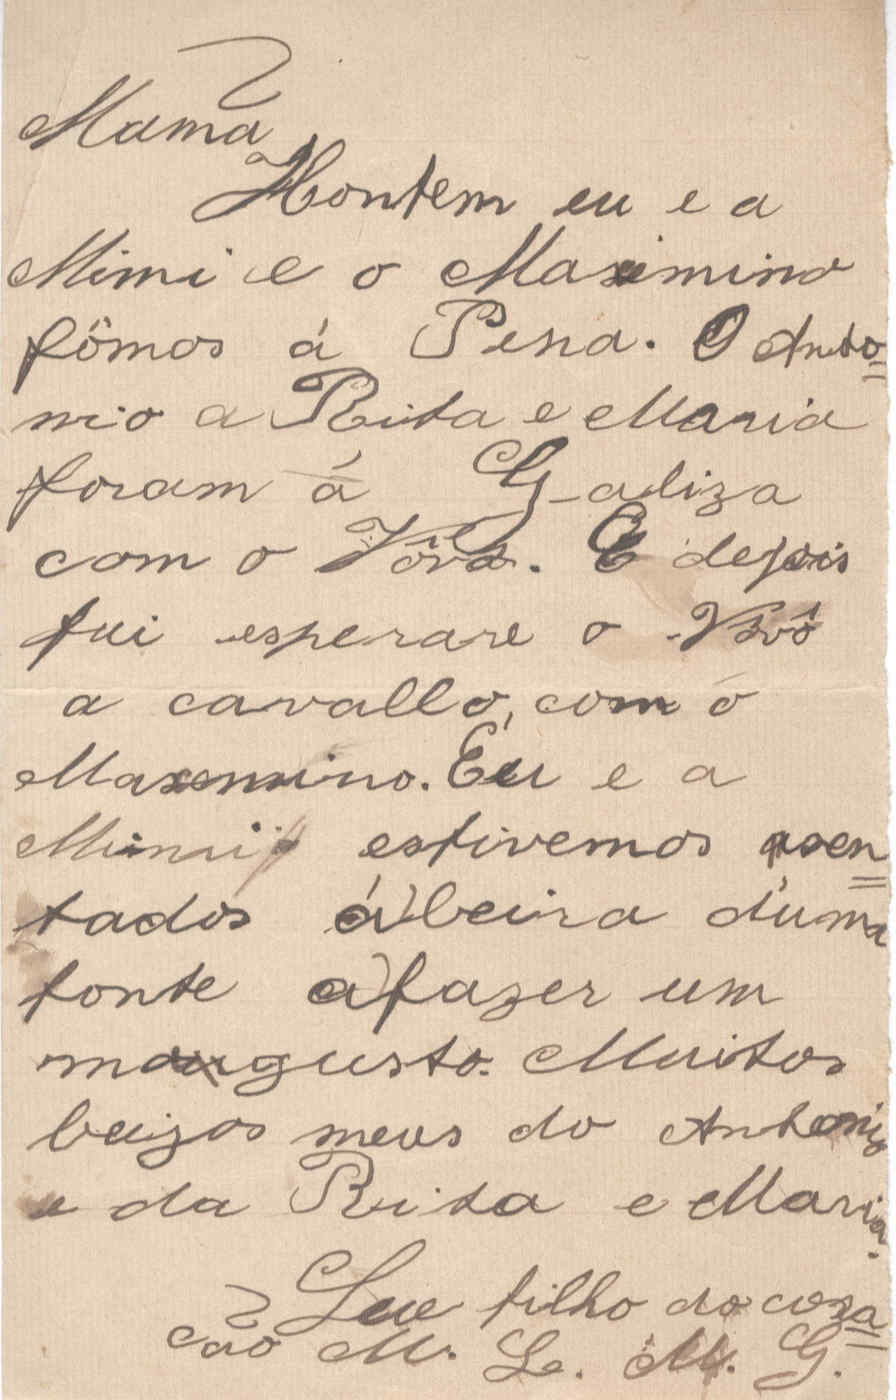 Mamã
Hontem eu e a
Mimi e o Maximino
fômos á Pena. O Anto=
nio a Rita e Maria
foram á Galiza
com o Vôvô. E depois
fui esperare o Vôvô
a cavallo, com o
Maxemino. Eu e a
Mimi estivemos asen=
tados á beira d'uma
fonte a fazer um
maugusto. Muitos
beizos meus do Antonio
e da Rita e Maria.
Seu filho do coza=
cão M. L. M. G.